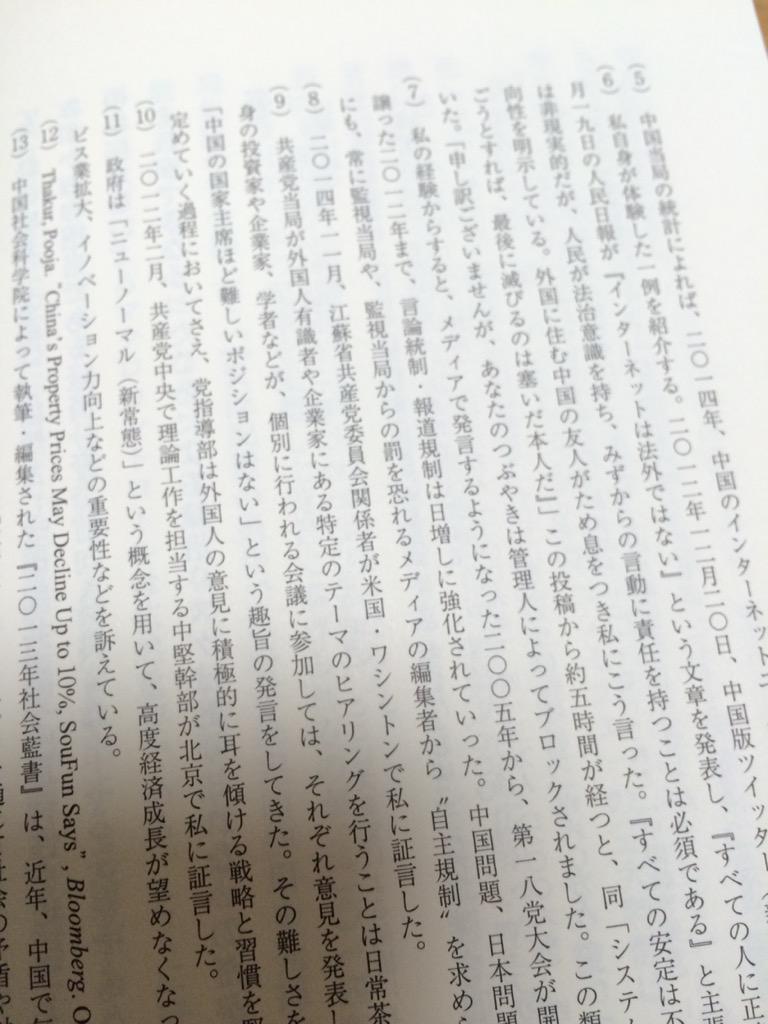 (5) 中国当局の統計によれば、二〇一四年、中国のインターネットユ
(6) 私自身が体験した一例を紹介する。二〇一二年一二月二〇日、中国版ツイッター
月一九日の人民日報が『インターネットは法外ではない』という文章を発表し、『すべての人に正
は非現実的だが、人民が法治意識を持ち、みずからの言動に責任を持つことは必須である』と主張
向性を明示している。外国に住む中国の友人がため息をつき私にこう言った。『すべての安定は不
ごうとすれば、最後に滅びるのは塞いだ本人だ』」この投稿から約五時間が経つと、同「システム
いた。「申し訳ございませんが、あなたのつぶやきは管理人によってブロックされました。この類
(7) 私の経験からすると、メディアで発言するようになった二〇〇五年から、第一八党大会が開
譲った二〇一二年まで、言論統制・報道規制は日増しに強化されていった。中国問題、日本問題
にも、常に監視当局や、監視当局からの罰を恐れるメディアの編集者から〝自主規制〟を求め
(8) 二〇一四年一一月、江蘇省共産党委員会関係者が米国・ワシントンで私に証言した。
(9) 共産党当局が外国人有識者や企業家にある特定のテーマのヒアリングを行うことは日常茶
身の投資家や企業家、学者などが、個別に行われる会議に参加しては、それぞれ意見を発表し
「中国の国家主席ほど難しいポジションはない」という趣旨の発言をしてきた。その難しさを
定めていく過程においてさえ、党指導部は外国人の意見に積極的に耳を傾ける戦略と習慣を
(10) 二〇一二年二月、共産党中央で理論工作を担当する中堅幹部が北京で私に証言した。
(11) 政府は「ニューノーマル(新常態)」という概念を用いて、高度経済成長が望めなくなっ
ビス業拡大、イノベーション力向上などの重要性などを訴えている。
(12) Thakur, Pooja. "China's Property Prices May Decline Up to 10%, SouFun Says", Bloomberg. O
(13) 中国社会科学院によって執筆・編集された『二〇一三年社会藍書』は、近年、中国で